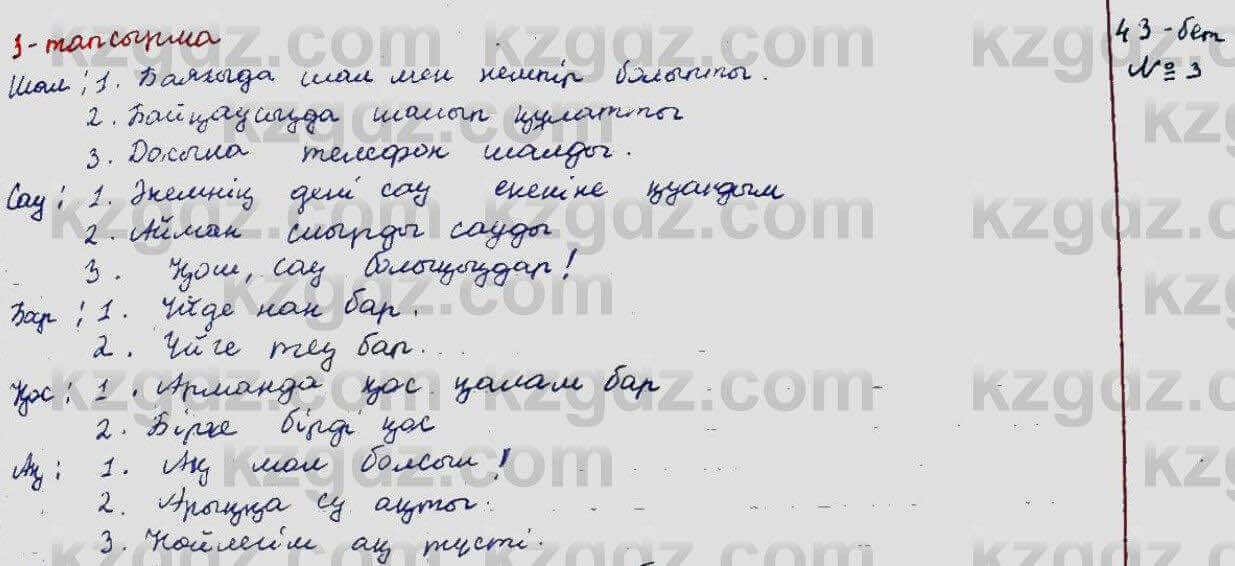 3-тапсырма
43-бет
№ 3
Шал: 1. Баяғыда шал мен кемпір болыпты.
2. Байқаусызда шалып құлатты
3. Досыма телефон шалды.
Сау: 1. Әкемнің дені сау екеніне қуандым
2. Айман сиырды сауды
3. Қош, сау болыңыздар!
Бар: 1. Үйде нан бар.
2. Үйге тез бар.
Қос: 1. Арманда қос қалам бар
2. Бірге бірді қос
Ақ: 1. Ақ мол болсын!
2. Арыққа су ақты.
3. Көйлегім ақ түсті.
kzgdz.com